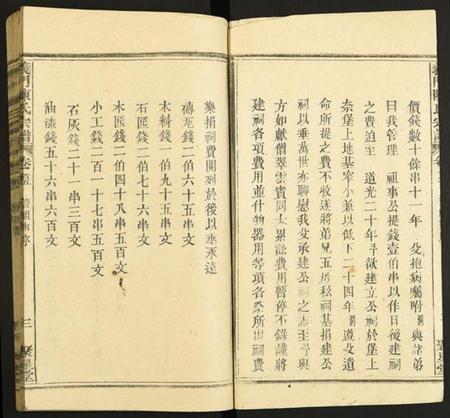 價錢數十餘串十一年 父抱病囑咐 與諸弟
曰我管理 祖事公提錢壹伯串以作日後建祠
之費迨至 道光二十年予欲建立公祠於堡上
奈堡上地基窄小兼以低下二十四年 遵父遺
命所提之費不收遂將弟兄五房私祠基捐建公
祠以垂萬世亦聊慰我父承建公祠之志至
方如獻僧翠雲賓同太累訟費用暫停不錄謹將
建祠各項費用並什物器用等項各祭所出祠費
樂捐祠費開列於後以垂永遠
磚瓦錢二伯六十五串文
木料錢二伯九十五串文
石匠錢二伯七十六串文
木匠錢二伯四十八串五百文
小工錢二百一十七串五百文
石灰錢二十一串三百文
油漆錢五十六串六百文
三 聚星堂